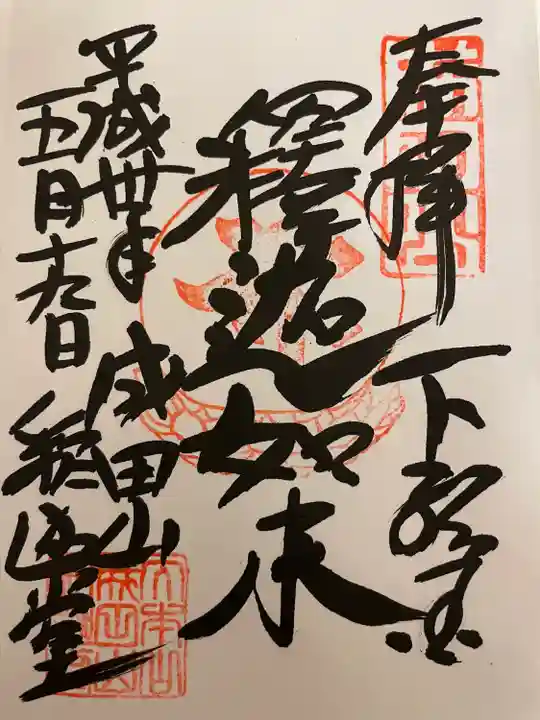 奉拝 下総国
釋迦如来
平成卅年 成田山
五月十九日 釋迦堂